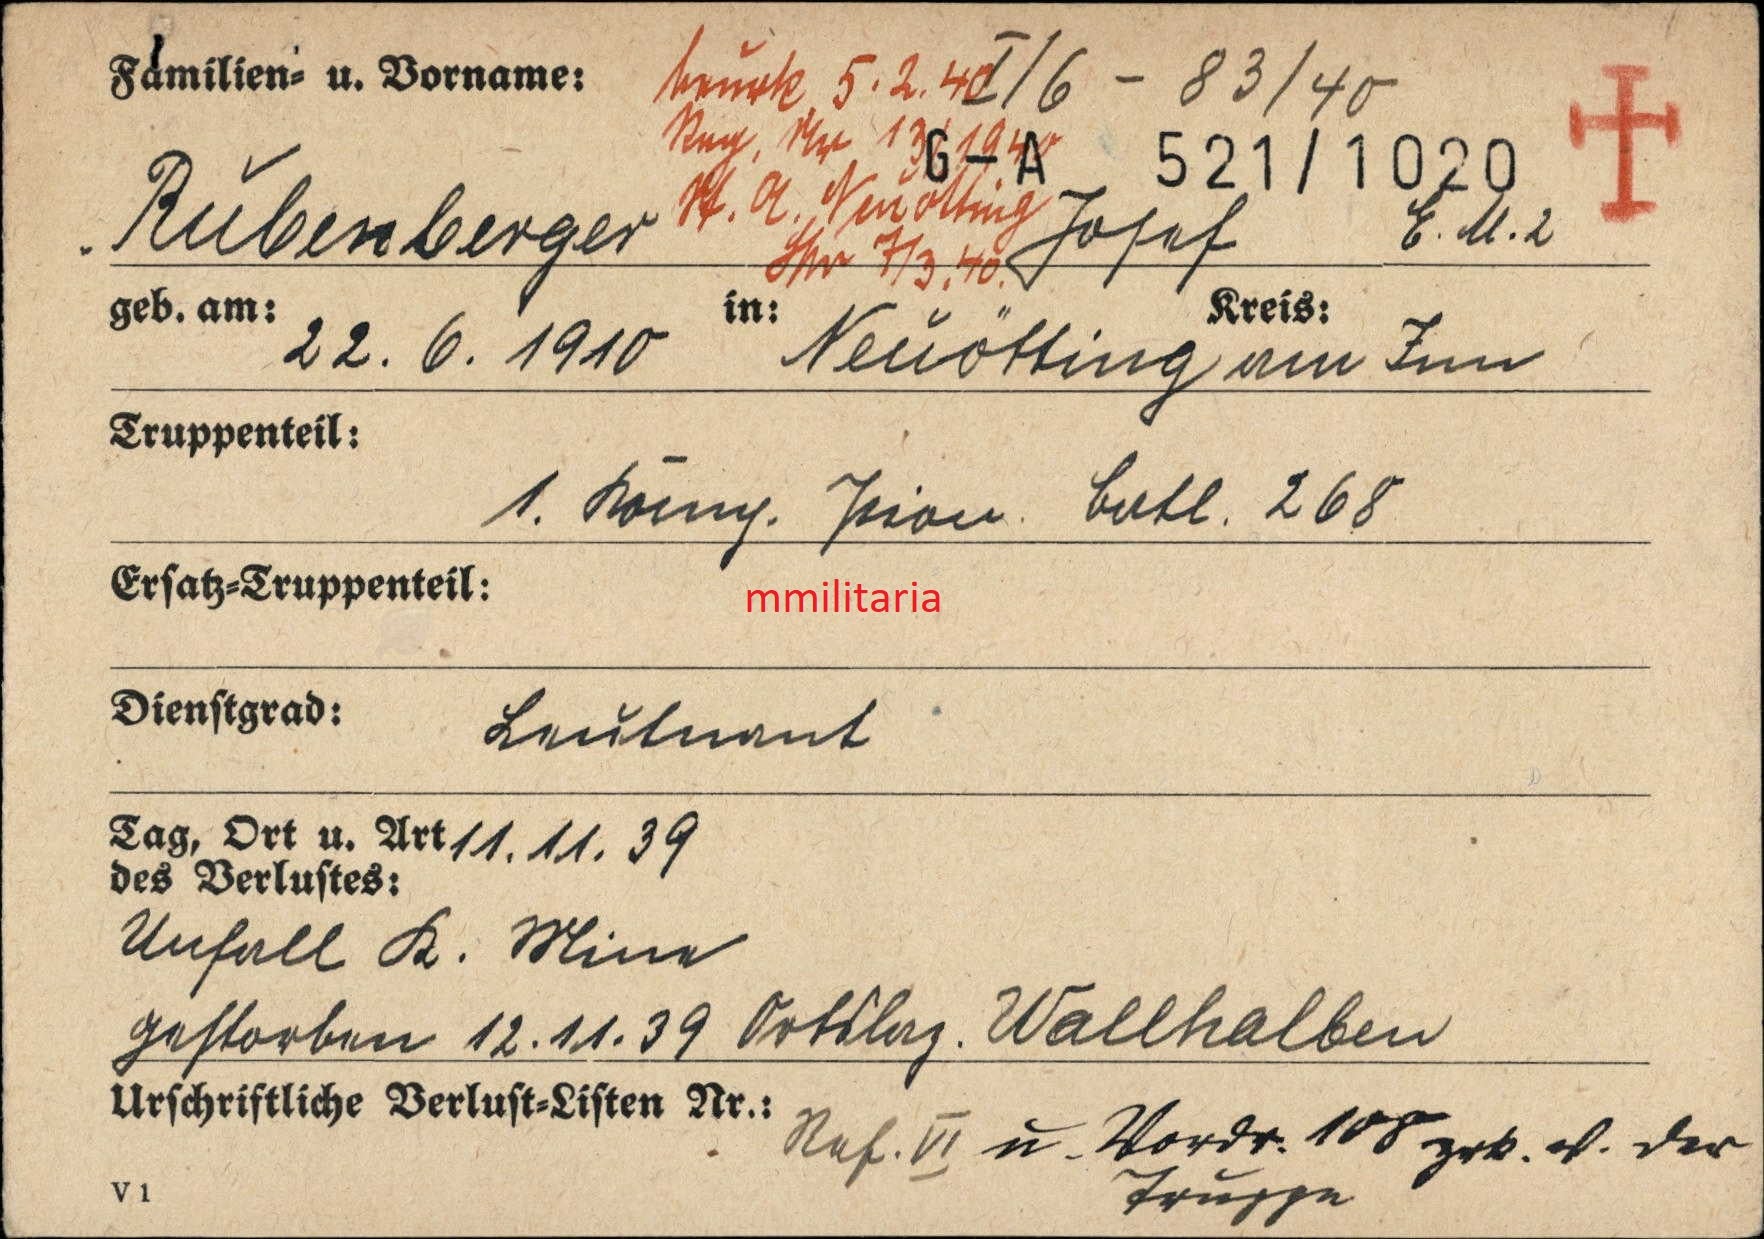 Familien- u. Vorname:
beurk 5.2.40
I/6 - 83/40
Reg. Nr 13/1940
G-A 521/1020
St. A. Neuötting
Rübenberger Josef E. M. 2
7/3.40.
geb. am: 22. 6. 1910 in: Neuötting am Inn Kreis:
Truppenteil:
1. Komp. Pion. Batl. 268
Ersatz-Truppenteil:
mmilitaria
Dienstgrad: Leutnant
Tag, Ort u. Art 11. 11. 39
des Verlustes:
Unfall K. Mine
gestorben 12.11.39 Ortslaz. Wallhalben
Urschriftliche Verlust-Listen Nr.:
Ref. VI u. Vordr. 108 zrk. v. der
Truppe
V 1